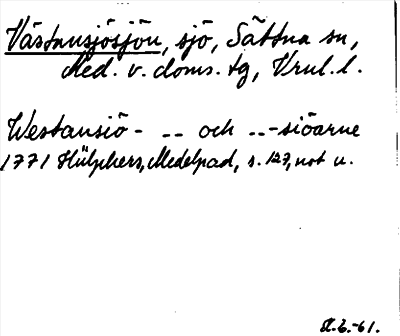 Västansjösjön, sjö, Sättna sn,
Med. v. doms. tg, Vrnl. l.
Westansiö- -- och ..-siöarne
1771 Hülphers, Medelpad, s. 127, not u.